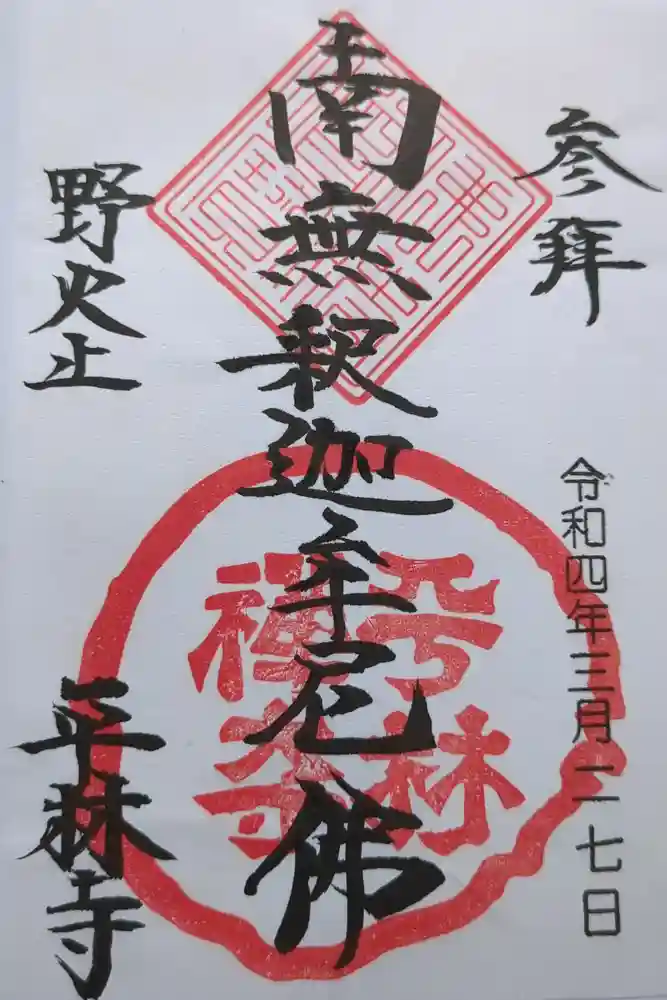 参拝
令和四年三月二七日
南無釈迦牟尼佛
野火止
平林寺
平林
禅寺